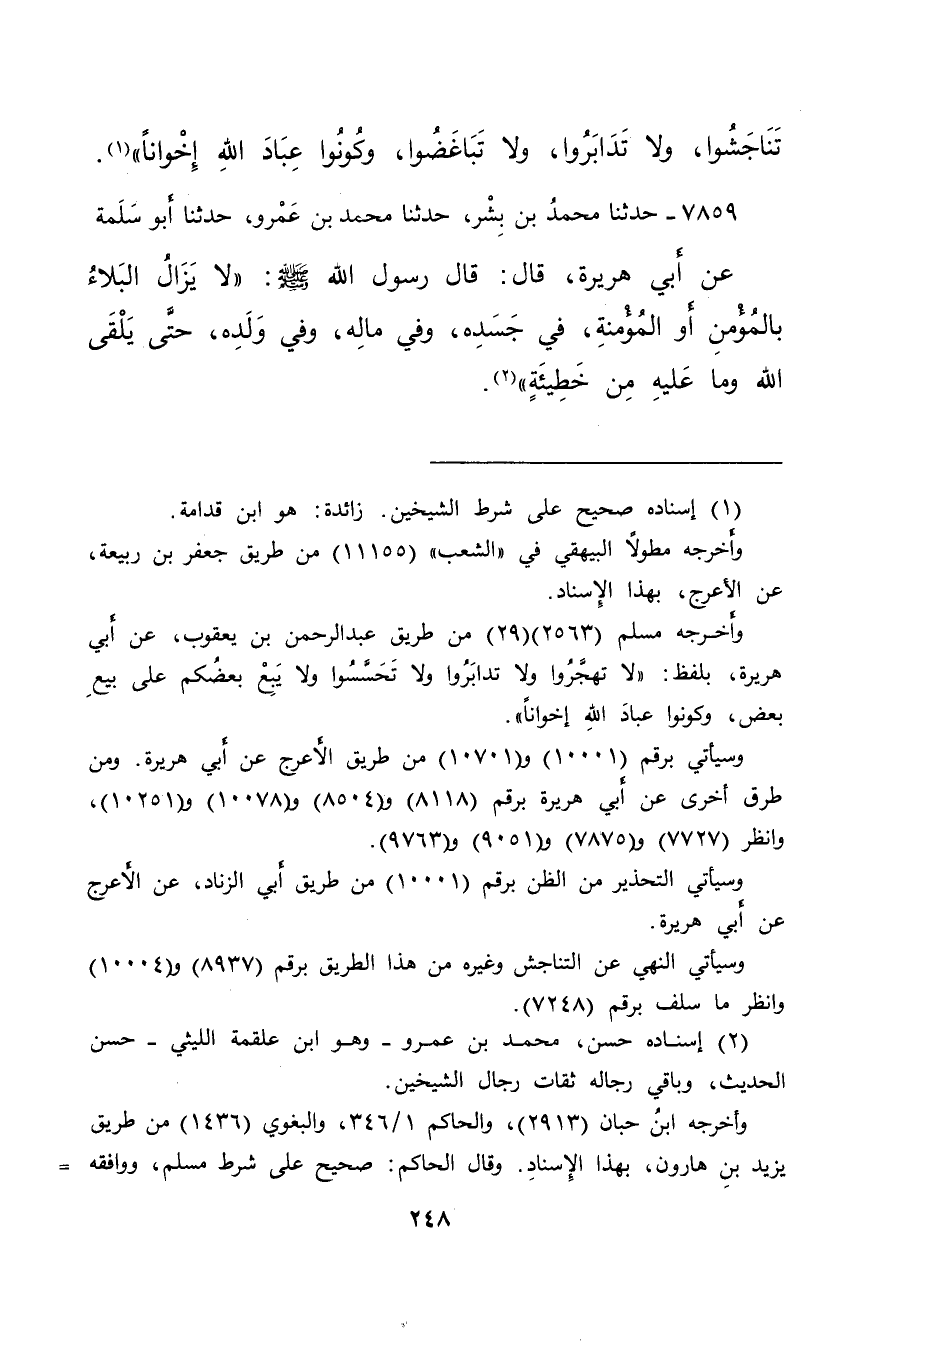 تَنَاجَشُوا، ولا تَدَابَرُوا، ولا تَبَاغَضُوا، وكُونُوا عِبَادَ اللهِ إِخْواناً»(١).
٧٨٥٩ - حدثنا محمدُ بن بِشْر، حدثنا محمد بن عَمْرو، حدثنا أَبو سَلَمة
عن أَبي هريرة، قال: قال رسول الله ﷺ: «لا يَزَالُ البَلاءُ
بالمُؤْمنِ أَو المُؤْمنةِ، في جَسَدِه، وفي مالِه، وفي وَلَدِه، حتَّى يَلْقَى
الله وما عَليهِ مِن خَطِيئَةٍ»(٢).
(١) إسناده صحيح على شرط الشيخين. زائدة: هو ابن قدامة.
وأَخرجه مطولًا البيهقي في «الشعب» (١١١٥٥) من طريق جعفر بن ربيعة،
عن الأعرج، بهذا الإسناد.
وأَخرجه مسلم (٢٥٦٣)(٢٩) من طريق عبدالرحمن بن يعقوب، عن أَبي
هريرة، بلفظ: «لا تهجَّرُوا ولا تدابَرُوا ولا تَحَسَّسُوا ولا يَبِعْ بعضُكم على بيعِ
بعض، وكونوا عبادَ اللهِ إخواناً».
وسيأتي برقم (١٠٠٠١) و(١٠٧٠١) من طريق الأَعرج عن أَبي هريرة. ومن
طرق أخرى عن أَبي هريرة برقم (٨١١٨) و(٨٥٠٤) و(١٠٠٧٨) و(١٠٢٥١)،
وانظر (٧٧٢٧) و(٧٨٧٥) و(٩٠٥١) و(٩٧٦٣).
وسيأتي التحذير من الظن برقم (١٠٠٠١) من طريق أَبي الزناد، عن الأَعرج
عن أَبي هريرة.
وسيأتي النهي عن التناجش وغيره من هذا الطريق برقم (٨٩٣٧) و(١٠٠٠٤)
وانظر ما سلف برقم (٧٢٤٨).
(٢) إسناده حسن، محمد بن عمرو - وهو ابن علقمة الليثي - حسن
الحديث، وباقي رجاله ثقات رجال الشيخين.
وأخرجه ابنُ حبان (٢٩١٣)، والحاكم ٣٤٦/١، والبغوي (١٤٣٦) من طريق
يزيد بنِ هارون، بهذا الإِسنادِ. وقال الحاكم: صحيح على شرط مسلم، ووافقه =
٢٤٨